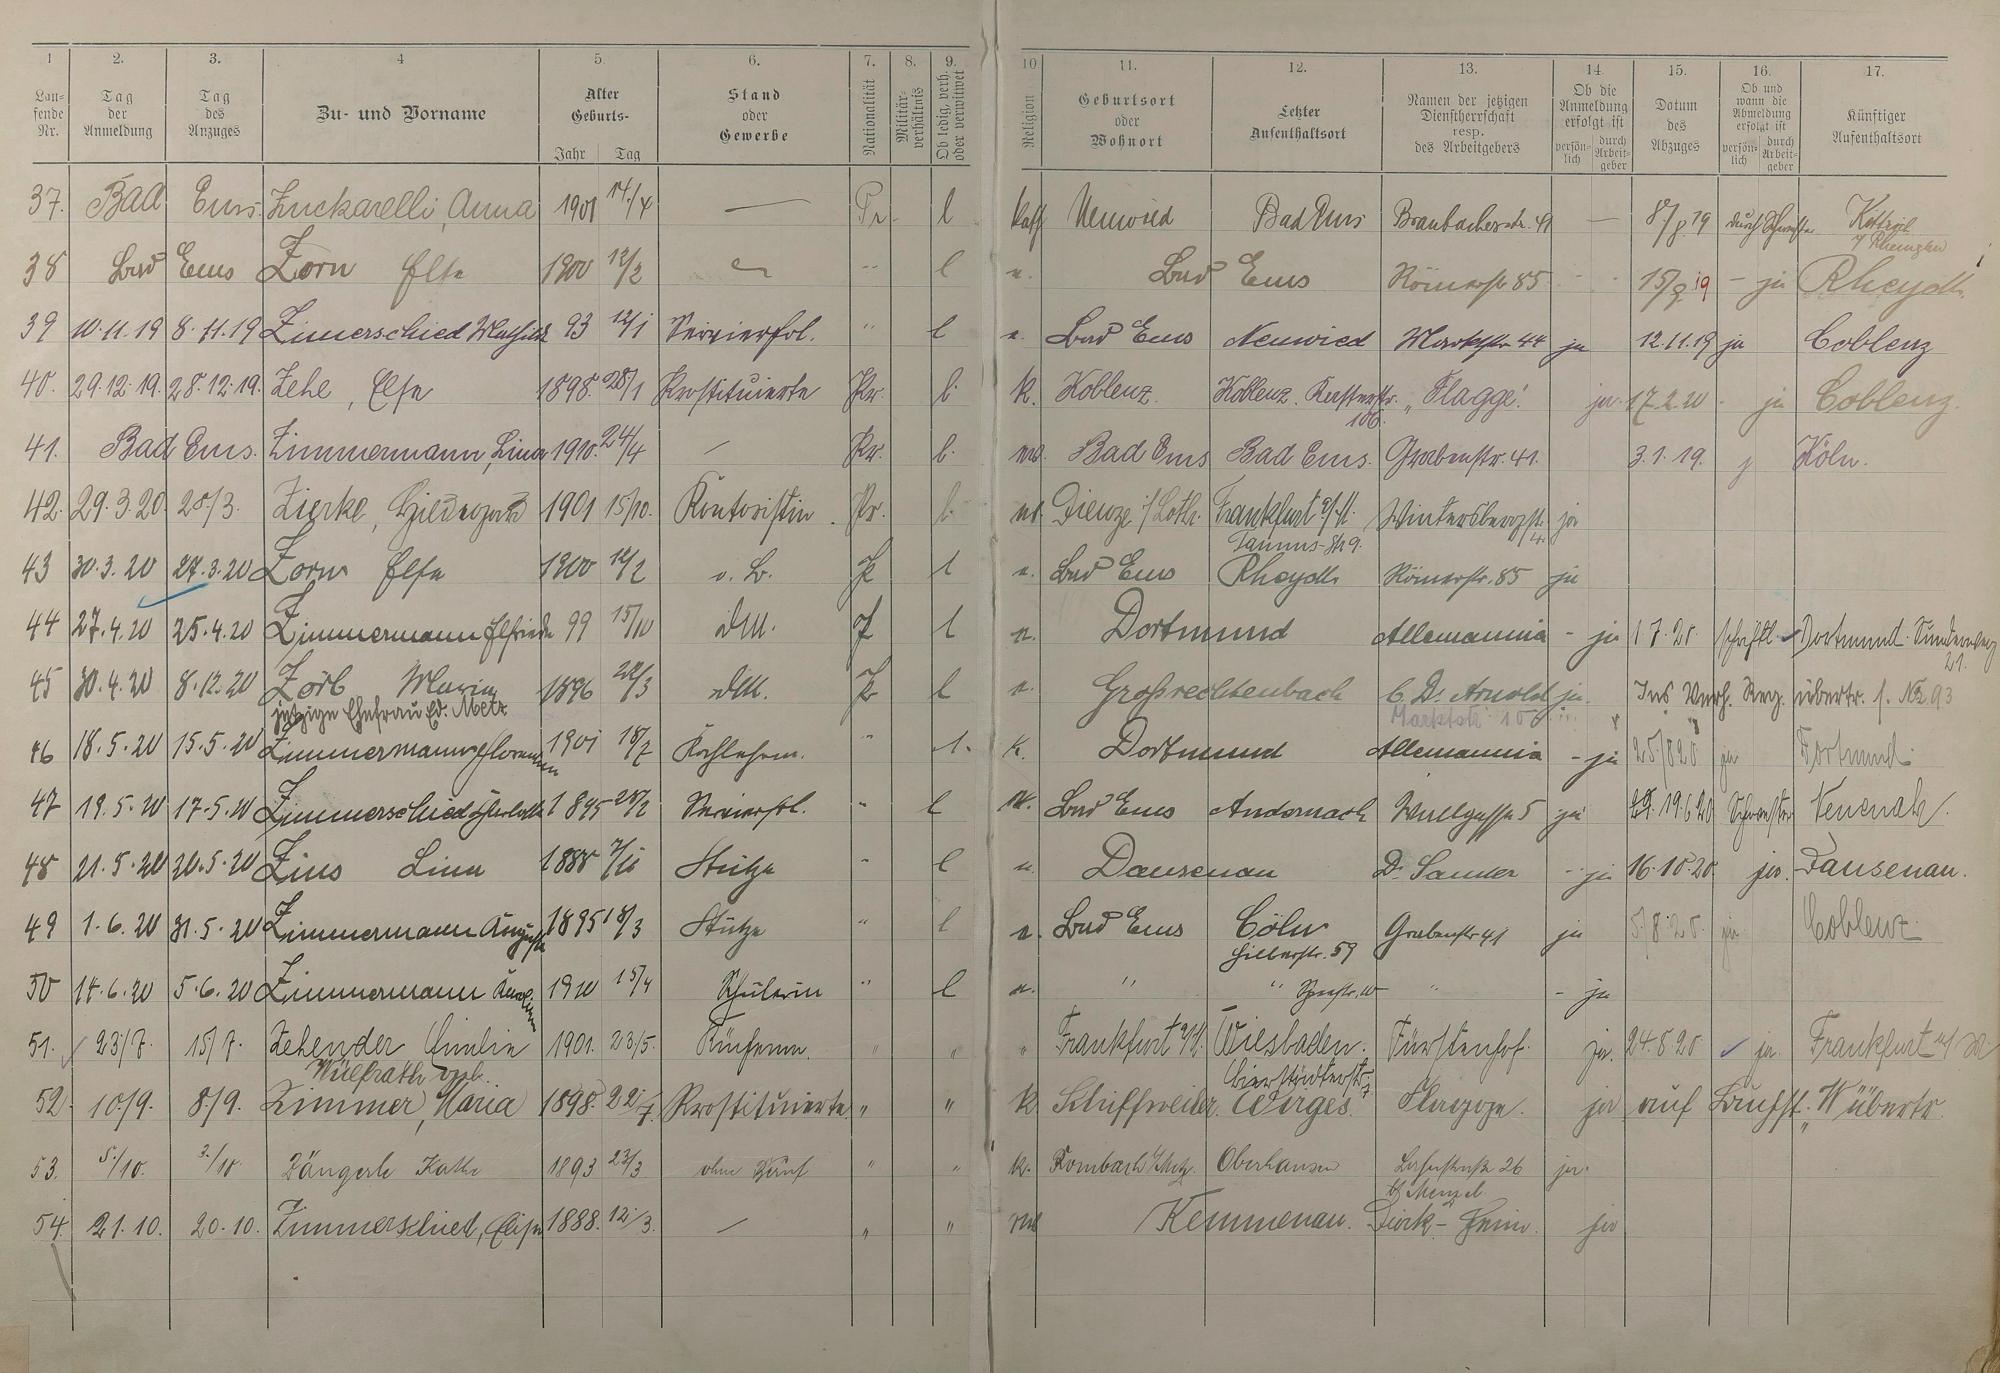 1 2. 3. 4 5. 6. 7. 8. 9. 10 11. 12. 13. 14. 15. 16. 17.
Lau-fende Nr. Tag der Anmeldung Tag des Anzuges Zu- und Vorname Alter Geburts- Jahr Tag Stand oder Gewerbe Nationalität Militär-verhältnis Ob ledig, verh. oder verwitwet Religion Geburtsort oder Wohnort Letzter Aufenthaltsort Namen der jetzigen Dienstherrschaft resp. des Arbeitgebers Ob die Anmeldung erfolgt ist persön-lich durch Arbeit-geber Datum des Abzuges Ob und wann die Abmeldung erfolgt ist persön-lich durch Arbeit-geber Künftiger Aufenthaltsort
37. Bad Ems. Zuckarelli, Anna 1901 14./4 — Pr. l kath Neuwied Bad Ems Braubacherstr. 41 — 8./8.19 durch
38 Bad Ems Zorn Else 1900 12/2 " l Bad Ems Römerstr. 85 15/9 19 - ja Rheydt
39 10.11.19 8.11.19 Zimerschied 93 12/1 Servierfrl. " l Bad Ems Neuwied Marktstr 44 ja 12.11.19 ja Coblenz
40. 29.12.19. 28.12.19. Zehe, Else 1898. 28/1 Prostituierte Pr. l. k. Koblenz. Koblenz. 106. „Flagge". ja 17.2.20 - ja Coblenz.
41. Bad Ems. Zimmermann, Lina 1910. 24/4 — Pr. l. Bad Ems Bad Ems. Grabenstr. 41. 3.1.19. j Köln.
42. 29.3.20 28./3. Zierke, Hildegard 1901 15/10. Kontoristin. Pr. l. Dieuze i/Lothr. Frankfurt a/M. Taunus-Str 9. Wintersbergstr. 4. ja
43 30.3.20 27.3.20 Zorn Else 1900 12/2 o. B. P l Bad Ems Rheydt Römerstr. 85 ja
44 27.4.20 25.4.20 Zimmermann Elfriede 99 15/10 l Dortmund Allemannia - ja 1 7.20 schriftl. Dortmund. 21.
45 30.4.20 8.12.20 Zorb Maria 1896 22/3 l Großrechtenbach C. D. Arnold ja. Ins Verh. Reg. übertr. s. No. 93
jetzige Ehefrau Ed. Metz Marktstr. 10
46 18.5.20 15.5.20 Zimmermann 1901 18/2 Kochlehrn. " l. k. Dortmund Allemannia - ja 25/8 20 ja Dortmund.
47 19.5.20 17.5.20 Zimmerschied 1895 28/2 Servierfrl. " l Bad Ems Andernach Wallgasse 5 ja 19 6 20 Schwester
48 21.5.20 20.5.20 Zins Lina 1888 Stütze " l Dausenau Dr. Sauder - ja 16.10.20. ja. Dausenau.
49 1.6.20 31.5.20 Zimmermann Auguste 1895 18/3 Stütze " l Bad Ems Cöln Grabenstr 41 ja 5/8.20. ja Coblenz.
50 14.6.20 5.6.20 Zimmermann 1910 15/4 Schülerin " l " " " - ja
51. 23/7. 15/7. Zehender Emilie 1901. 23/5. " " " Frankfurt a/M. Wiesbaden. Bierstadterstr. 7 Fürstenhof. ja. 24.8.20 ja. Frankfurt a/M
52. 10./9. 8./9. Zimmer, Maria 1898. 22./7. Prostituierte " " k. Schiffweiler. Wirges. Flagge. ja auf Buchst. „W" übertr.
53. 5./10. 3./10. Zängerle Kathe 1893 23/3 ohne Beruf " " k. Rombach Oberhausen 26 ja.
54. 21.10. 20.10. Zimmerschied, Elise 1888. 12./3. — " " Kemmenau. ja